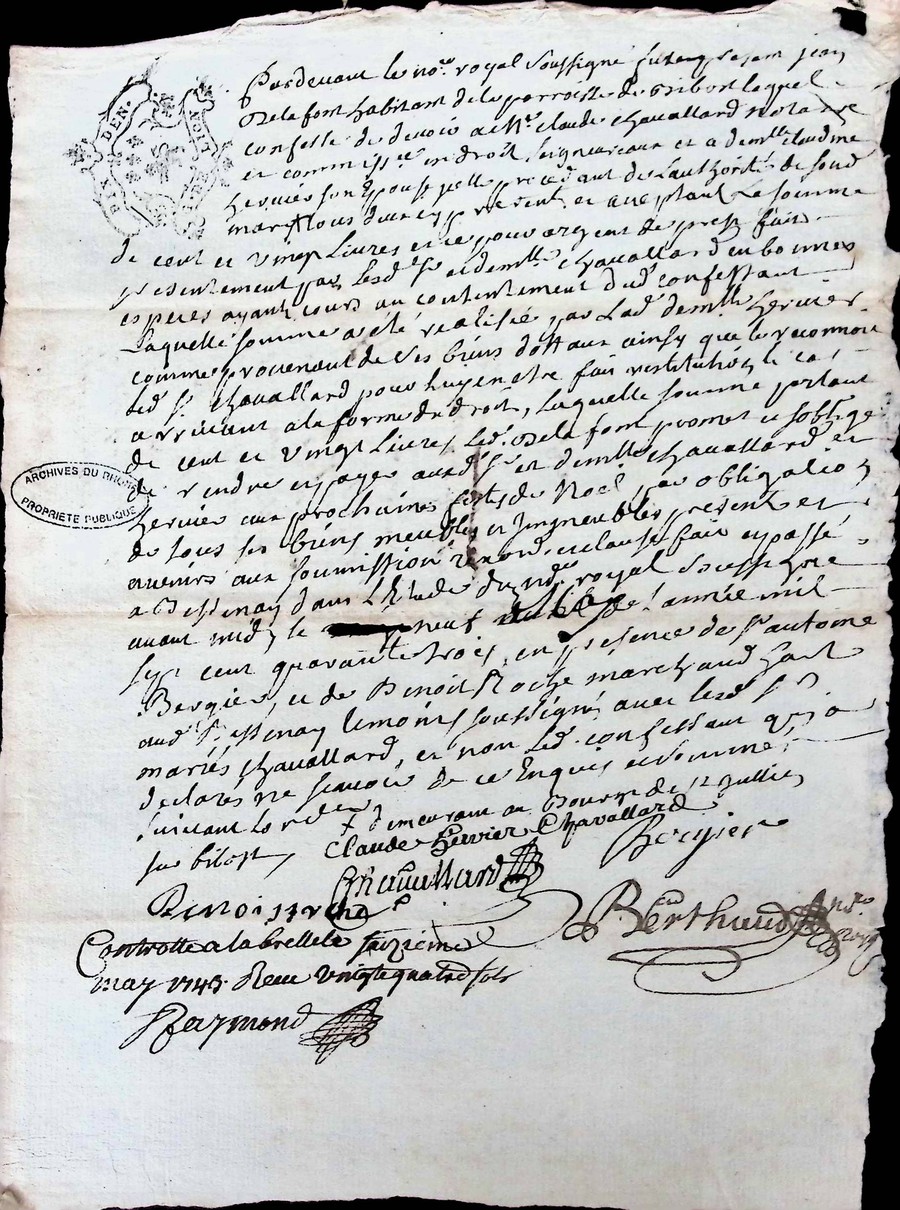 Pardevant le no.re royal soussigné fut en present jean
Delafont habitant de la parroisse de Bibost lequel
confesse de devoir a M.e claude chavallard notaire
et commissre en droit seigneuriaux et a dem.lle claudine
hervier son Epouse, icelle procedant de l'authorité de soud
mary tous deux cy present, et aceptant La somme
de cent et vingt Livres et ce pour argent de prest fait
presentement par lesd. Sr et demlle chavallard en bonnes
especes ayant cours au contentement dud confessant
Laquelle somme a eté realisée par Lad. demlle hervier
comme provenant de ses biens dottaux ainsy que le reconnoit
led. Sr. chavallard pour luy en etre fait restitution le cas
arrivant a la forme du droit, Laquelle somme portant
de cent et vingt Livres, Led. Delafont promet et s'oblige
de rendre et payer aud Sr et demlle chavallard et
hervier aux prochaines festes de Noel, par obligation
de tous ses biens meubles et immeubles present et
avenirs aux soumissions renon. et clauses fait et passé
a Bessenay dans L'Etude du no.re royal soussigné
avant midy le neuf de l'année mil
sept cent quarante trois, en presence de Sr antoine
Bergier, et de Benoit Roche marchand
aud Bessenay temoins soussignés avec lesd S.
mariés chavallard, et non Led. confessant qui a
declaré ne scavoir de ce Enquis et sommé
suivant Lordce + demeurant au Bourg de St Jullien
sur bibost,
Claude hervier Chavallard
Bergier
Chavallard
Benoist roche
Berthaud no.re royal
Controlle a la brelle le seizieme
may 1743. Receu vingt quatre sols
Reymond
DIX DEN.
LION
ARCHIVES DU RHONE
PROPRIETE PUBLIQUE